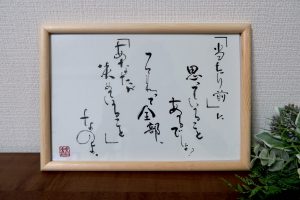 「当たり前」に
思っていること
あるでしょ
それって全部、
「あなたが
築いていること」
なのよ。